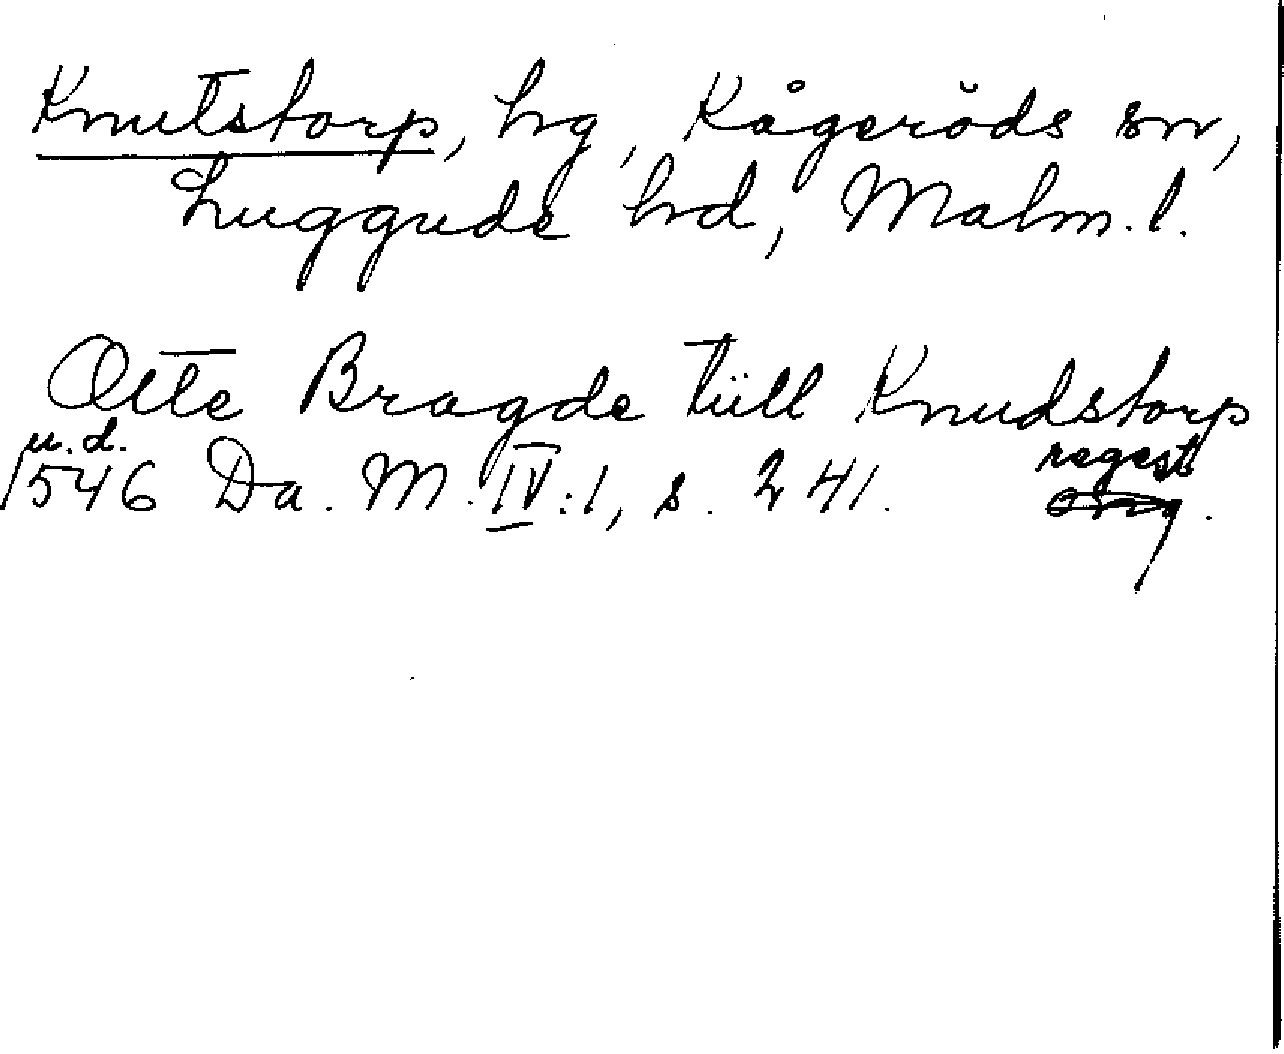 Knutstorp, hg, Kågeröds sn,
Luggude hd, Malm. l.
Otte Bragde tiill Knudstorp
u. d. regest
1546 Da. M. IV:1, s. 241. orig.